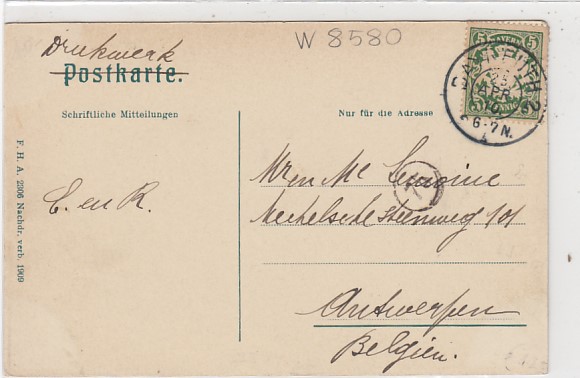 W 8580
Drukwerk
Postkarte.
Schriftliche Mitteilungen
Nur für die Adresse
5 BAYERN 5
23
APR.
6-7N.
F. H. A. 2306 Nachdr. verb. 1909
Mr en Me
E. en R.
Mechelsche steenweg 101
Antwerpen
Belgien.